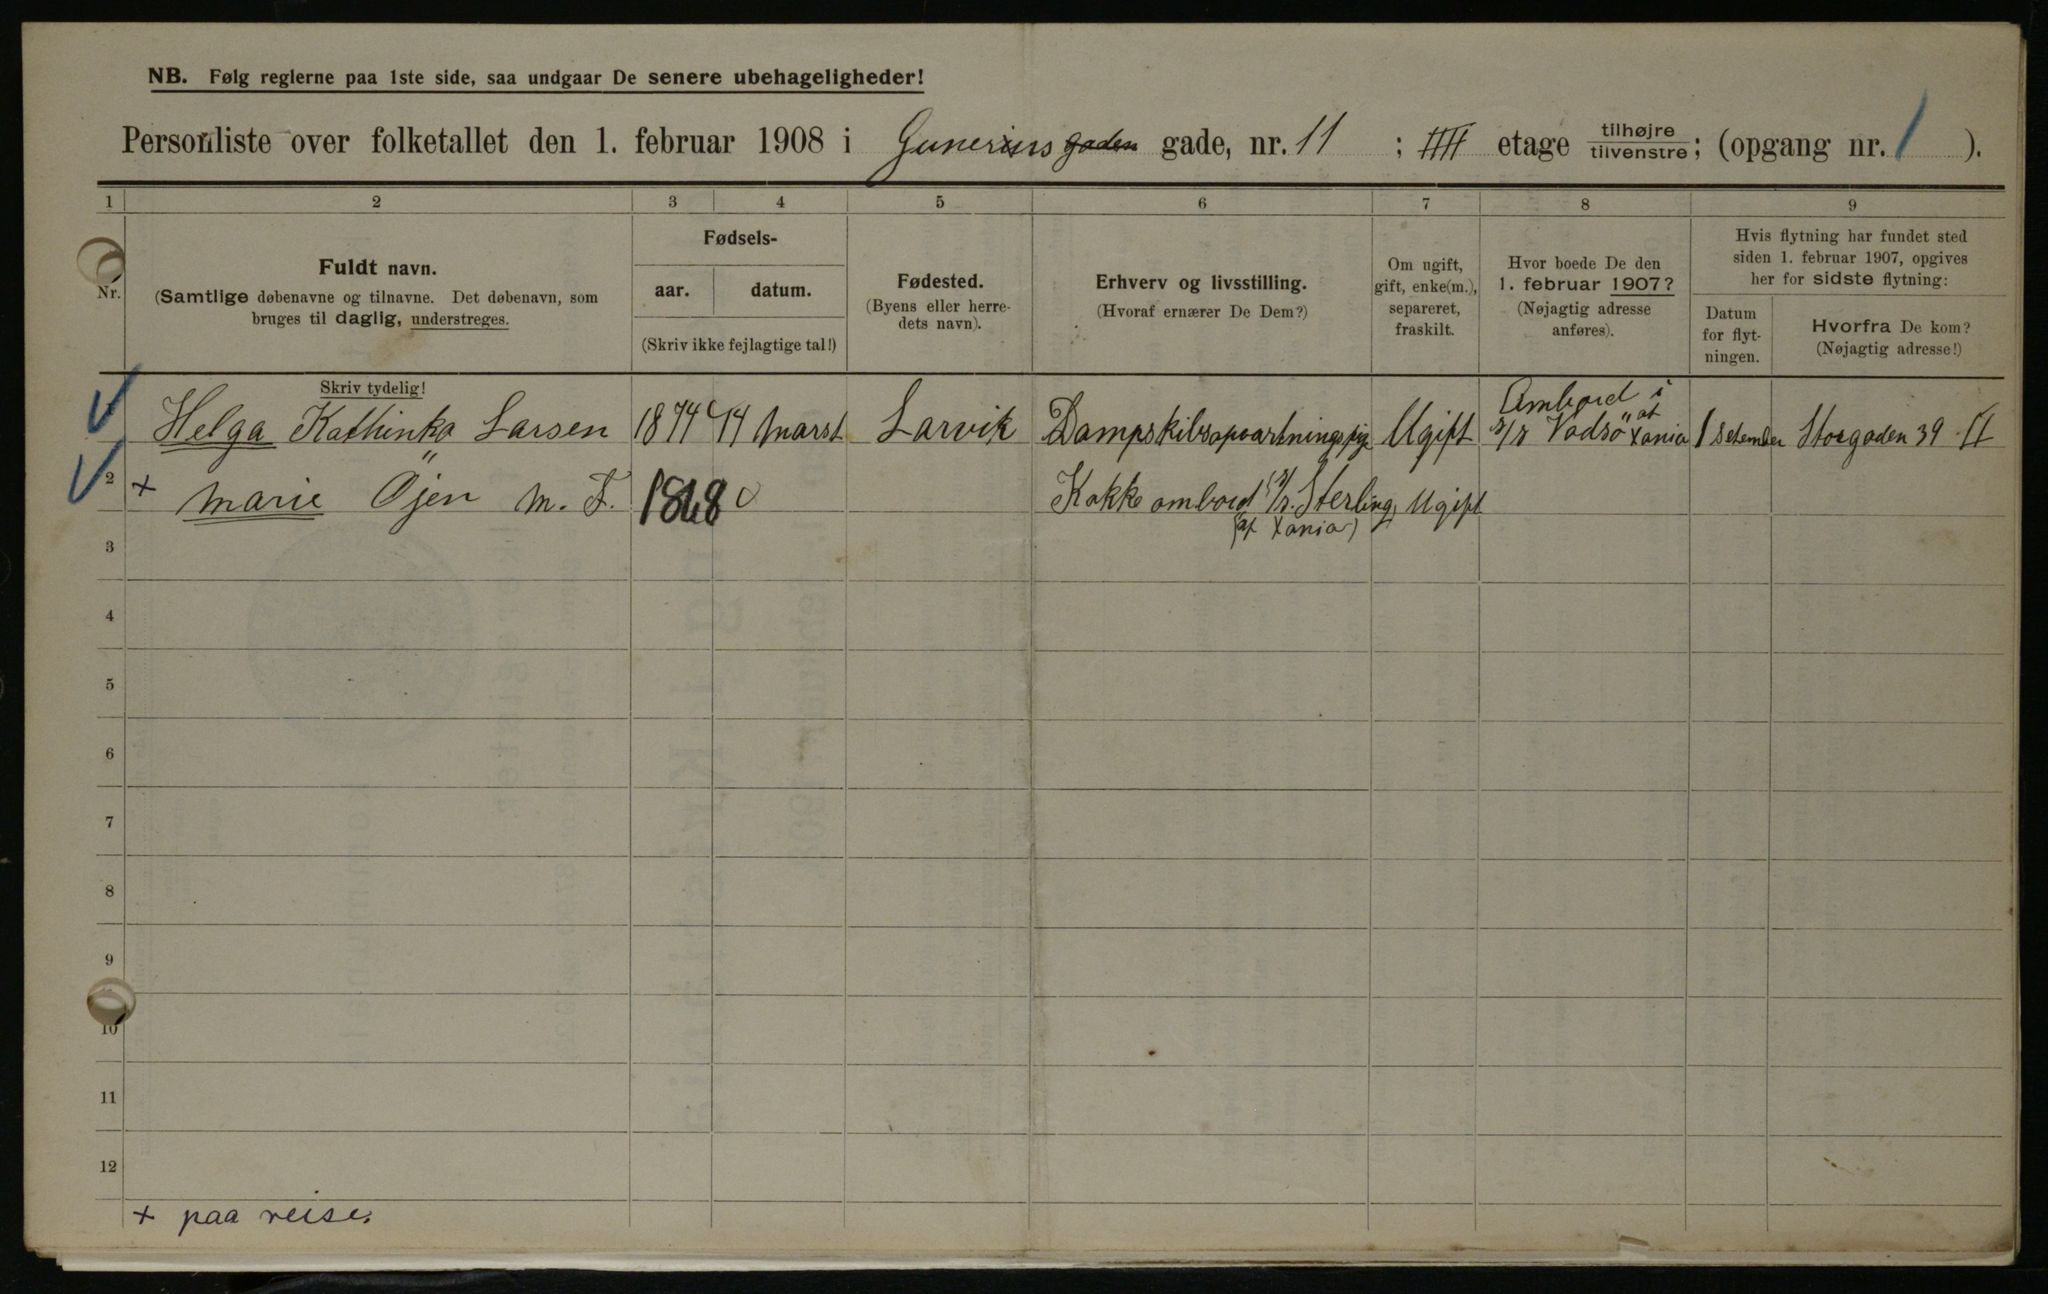 NB. Følg reglerne paa 1ste side, saa undgaar De senere ubehageligheder!
Personliste over folketallet den 1. februar 1908 i Gunerius gaden gade, nr. 11 ; IIII etage tilhøjre/tilvenstre; (opgang nr. 1 ).
1 2 3 4 5 6 7 8 9
Nr.
Fuldt navn.
(Samtlige døbenavne og tilnavne. Det døbenavn, som
bruges til daglig, understreges.
Skriv tydelig!
Fødsels-
aar. datum.
(Skriv ikke fejlagtige tal!)
Fødested.
(Byens eller herre-
dets navn).
Erhverv og livsstilling.
(Hvoraf ernærer De Dem?)
Om ugift,
gift, enke(m.),
separeret,
fraskilt.
Hvor boede De den
1. februar 1907?
(Nøjagtig adresse
anføres).
Hvis flytning har fundet sted
siden 1. februar 1907, opgives
her for sidste flytning:
Datum
for flyt-
ningen.
Hvorfra De kom?
(Nøjagtig adresse!)
Ombord i
Helga Kathinka Larsen 1874 14 Marst Larvik Ugift s/s Vadsö af Xania 1 setember Storgaden 39 II
2 + Marie Öjen M. F. 1868 Kokke ombord s/s. Sterling Ugift
(af Xania)
3
4
5
6
7
8
9
10
11
12
+ paa reise.